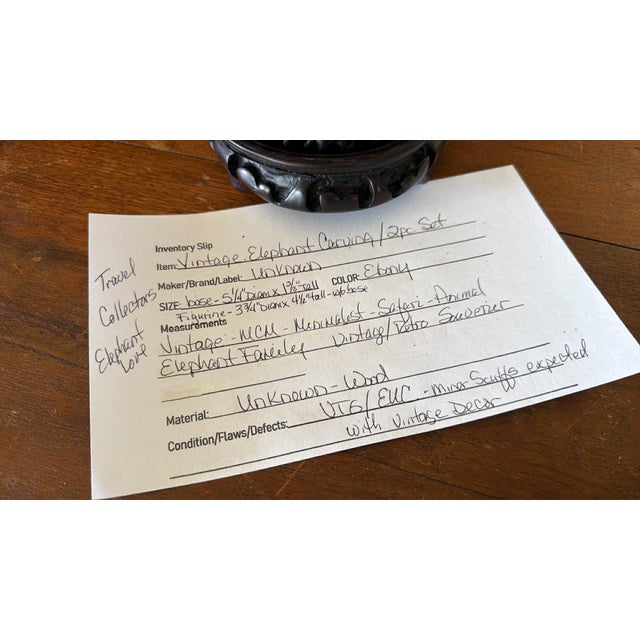 Travel
Collectors
Elephant
Love
Inventory Slip
Item: Vintage Elephant Carving / 2pc Set
Maker/Brand/Label: Unknown
SIZE: base - 5 1/4" Diam x 1 3/8" tall COLOR: Ebony
Figurine - 3 3/4" Diam x 4 1/2" tall - w/o base
Measurements
Vintage - MCM - Minimalist - Safari - Animal
Elephant Family Vintage / Retro Souvenier
Material: Unknown - Wood
Condition/Flaws/Defects: VTG / EUC - Minor Scuffs expected
with Vintage Decor